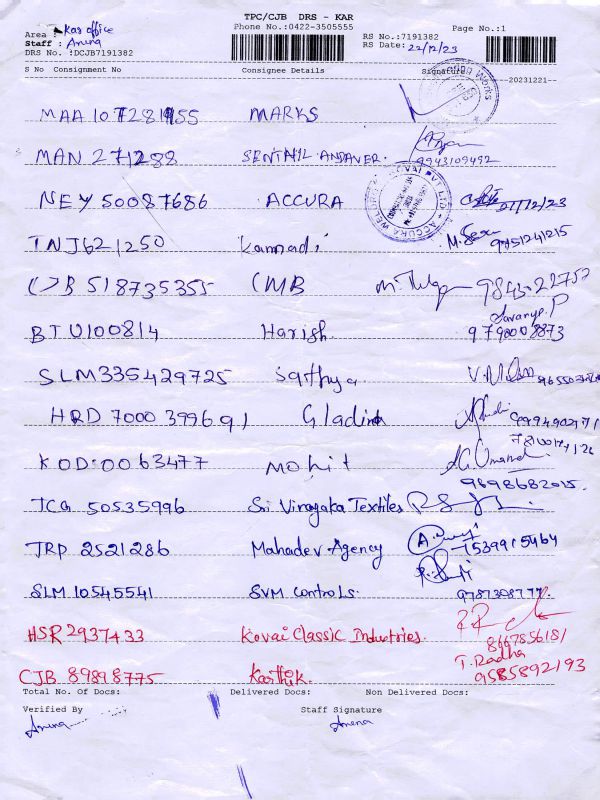 TPC/CJB DRS - KAR
Phone No.:0422-3505555
Page No.:1
Area : Kar office
Staff : Amena
DRS No. :DCJB7191382
RS No.:7191382
RS Date: 22/12/23
S No Consignment No Consignee Details Signature 20231221--
MARKS
MAN 271288 SENTHIL ANDAVER. 9943109492
NEY 50087686 ACCURA 21/12/23
TNJ621250 9751241215
518735355 CMB 9843022752
BTU100814 Harish. Saranya.P
9790008873
SLM335429725 Sathya
HRD 7000399691
KOD:0063477 Mohit
9698682015
TCG 50535996 Sri Vinayaka Textiles
TRP 2521286 Mahadev Agency
SLM 10545541 SVM Controls.
HSR2937433 Kovai Classic Industries. 8667856181
CJB 89898775 Karthik. T. Radha
9585892193
Total No. Of Docs: Delivered Docs: Non Delivered Docs:
Verified By Staff Signature
Amena Amena